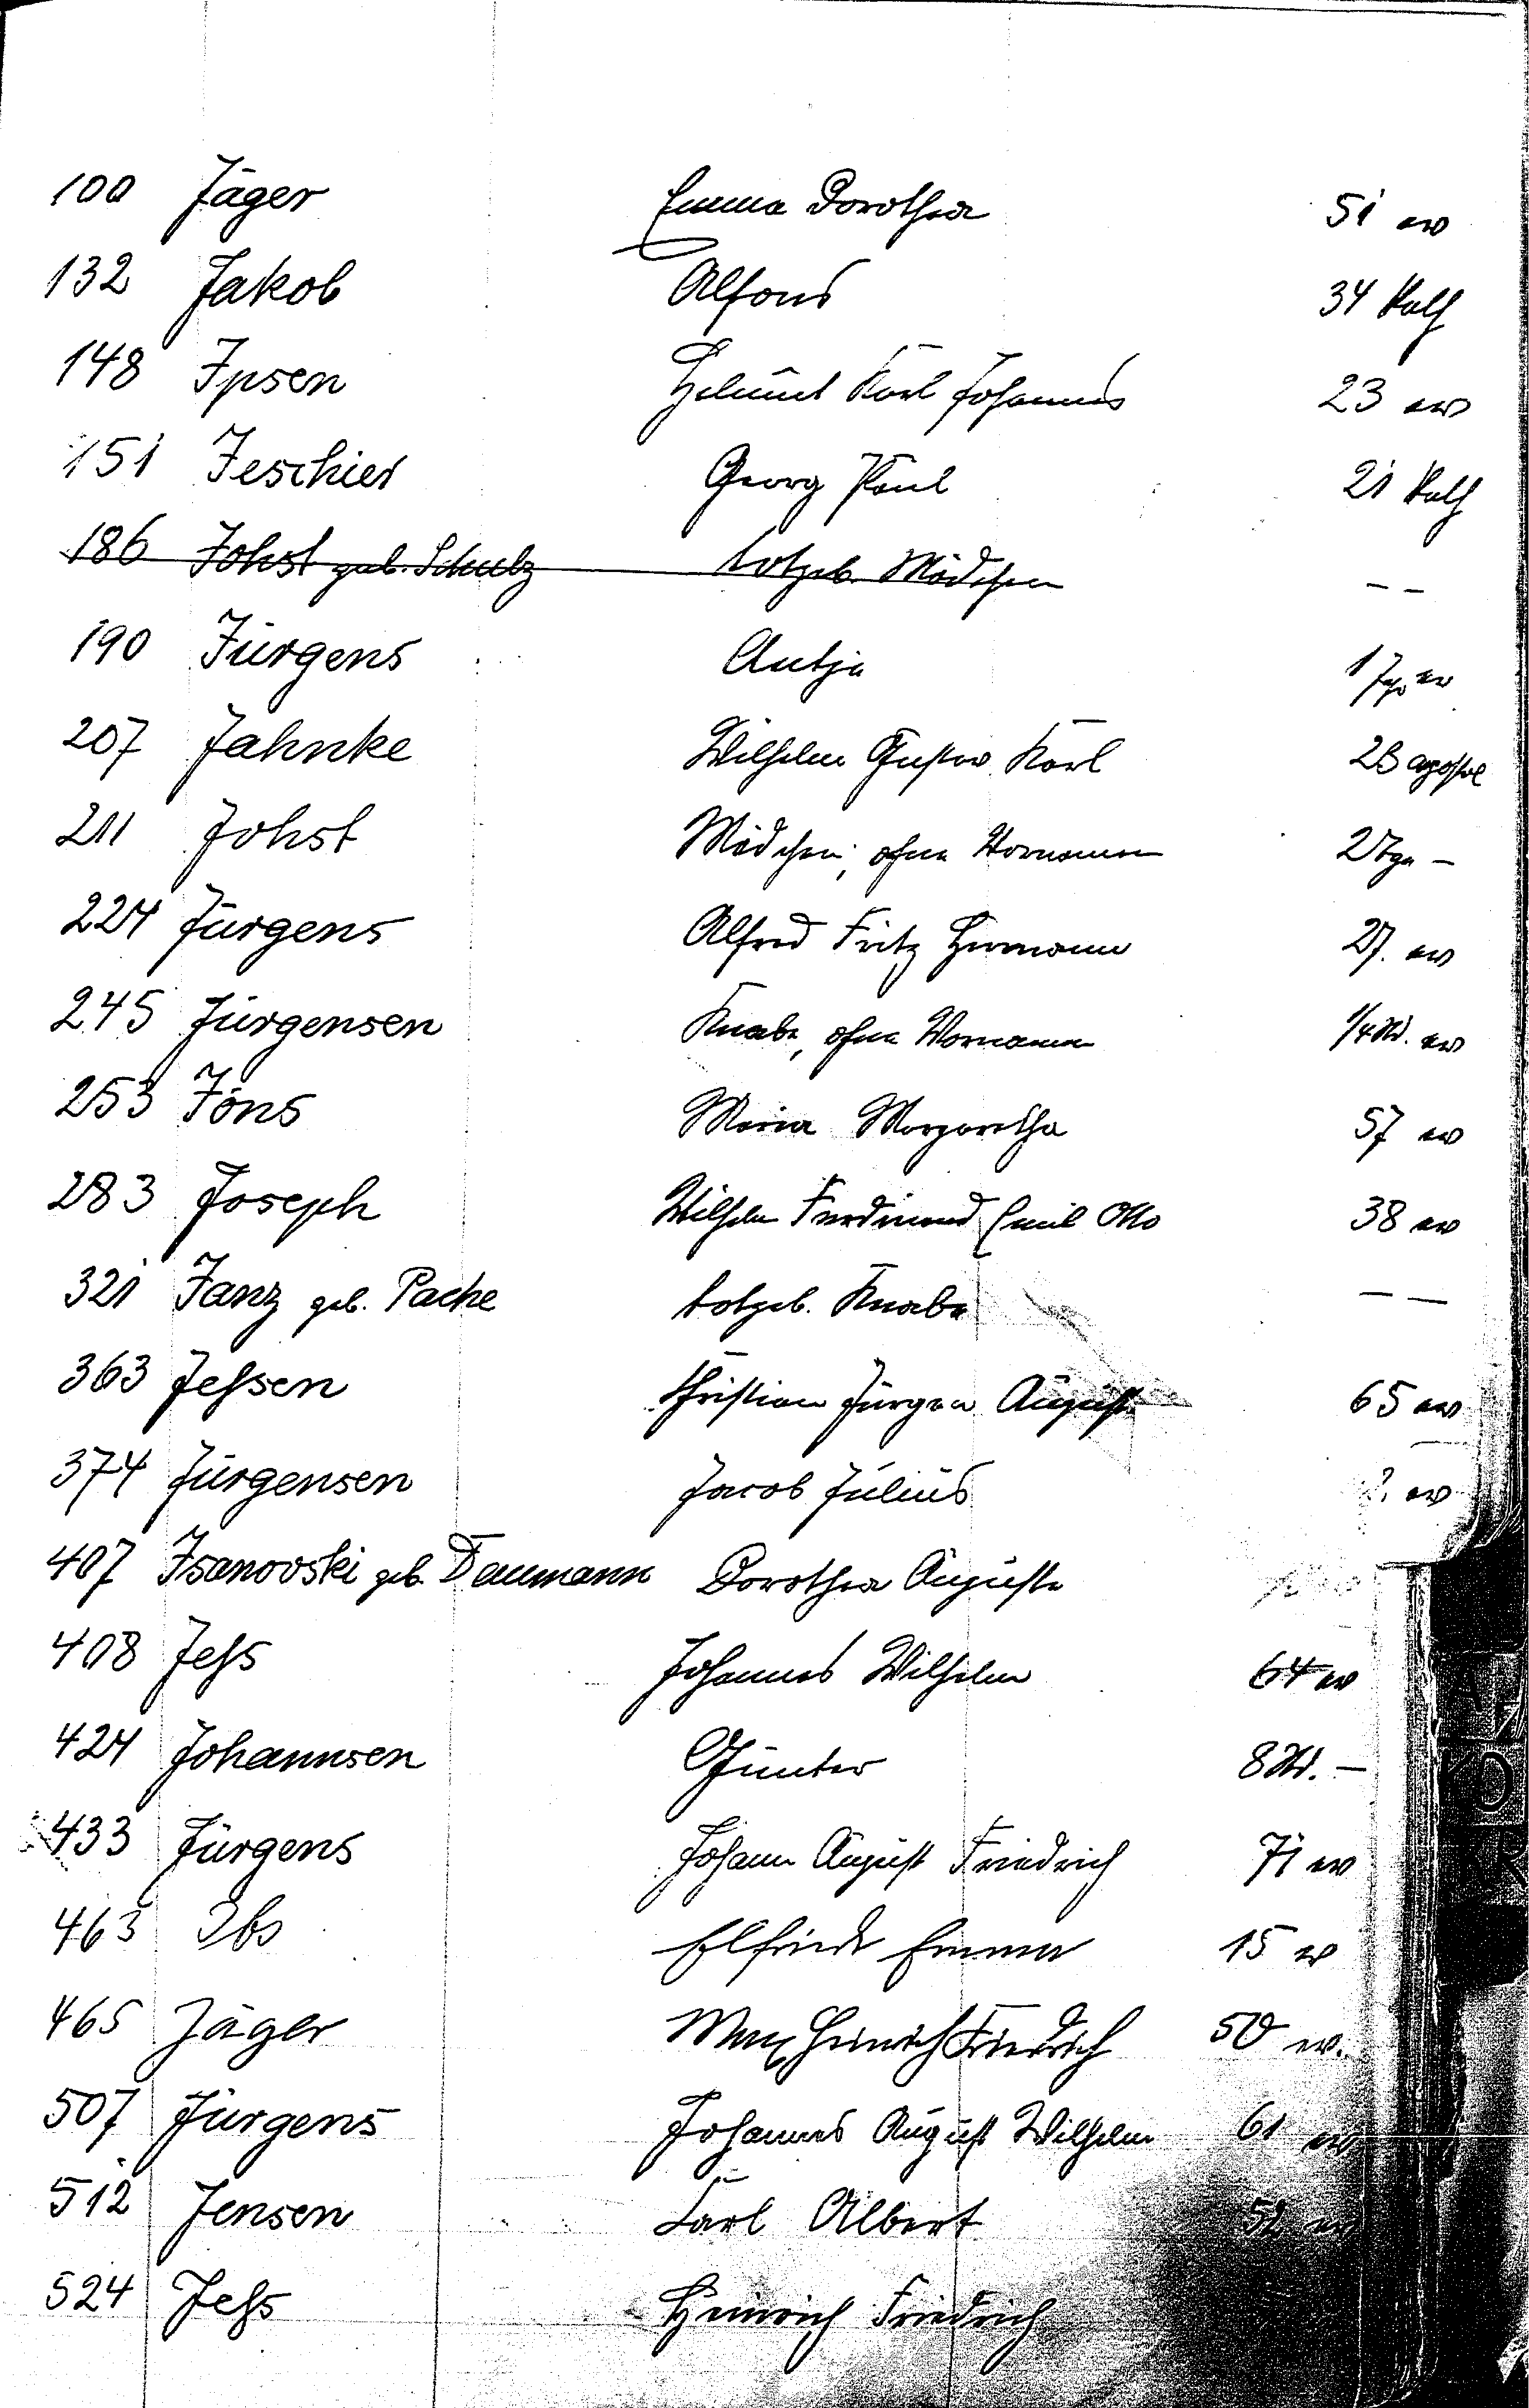 100 Jäger Emma Dorothea 51 ev
132 Jakob Alfons 34 kath
148 Ipsen Helmut Karl Johannes 23 ev
151 Jeschier Georg Paul 21 kath
186 Johst geb. Schulz totgeb. Mädchen - -
190 Jürgens Antje 1 ev
207 Jahnke Wilhelm Gustav Karl 23 apostol
211 Johst Mädchen, ohne Vornamen 2 Tge -
224 Jürgens Alfred Fritz Hermann 27. ev
245 Jürgensen Knabe, ohne Vornamen 1/4 Std. ev
253 Jöns Maria Margaretha 57 ev
283 Joseph Wilhelm Ferdinand Emil Otto 38 ev
321 Janz geb. Pache totgeb. Knabe — —
363 Jeßsen Christian Jürgen August 65 ev
374 Jürgensen Jacob Julius ev
407 Isanovski geb. Daumann Dorothea Auguste
408 Jeß Johannes Wilhelm 64 ev
424 Johannsen Günter 8 Std. —
433 Jürgens Johann August Friedrich 71 ev
463 Ibs Elfriede Emma 15 ev
465 Jäger Max Heinrich Friedrich 50 ev.
507 Jürgens Johannes August Wilhelm 61 ev
512 Jensen Karl Albert 52 ev
524 Jeß Heinrich Friedrich